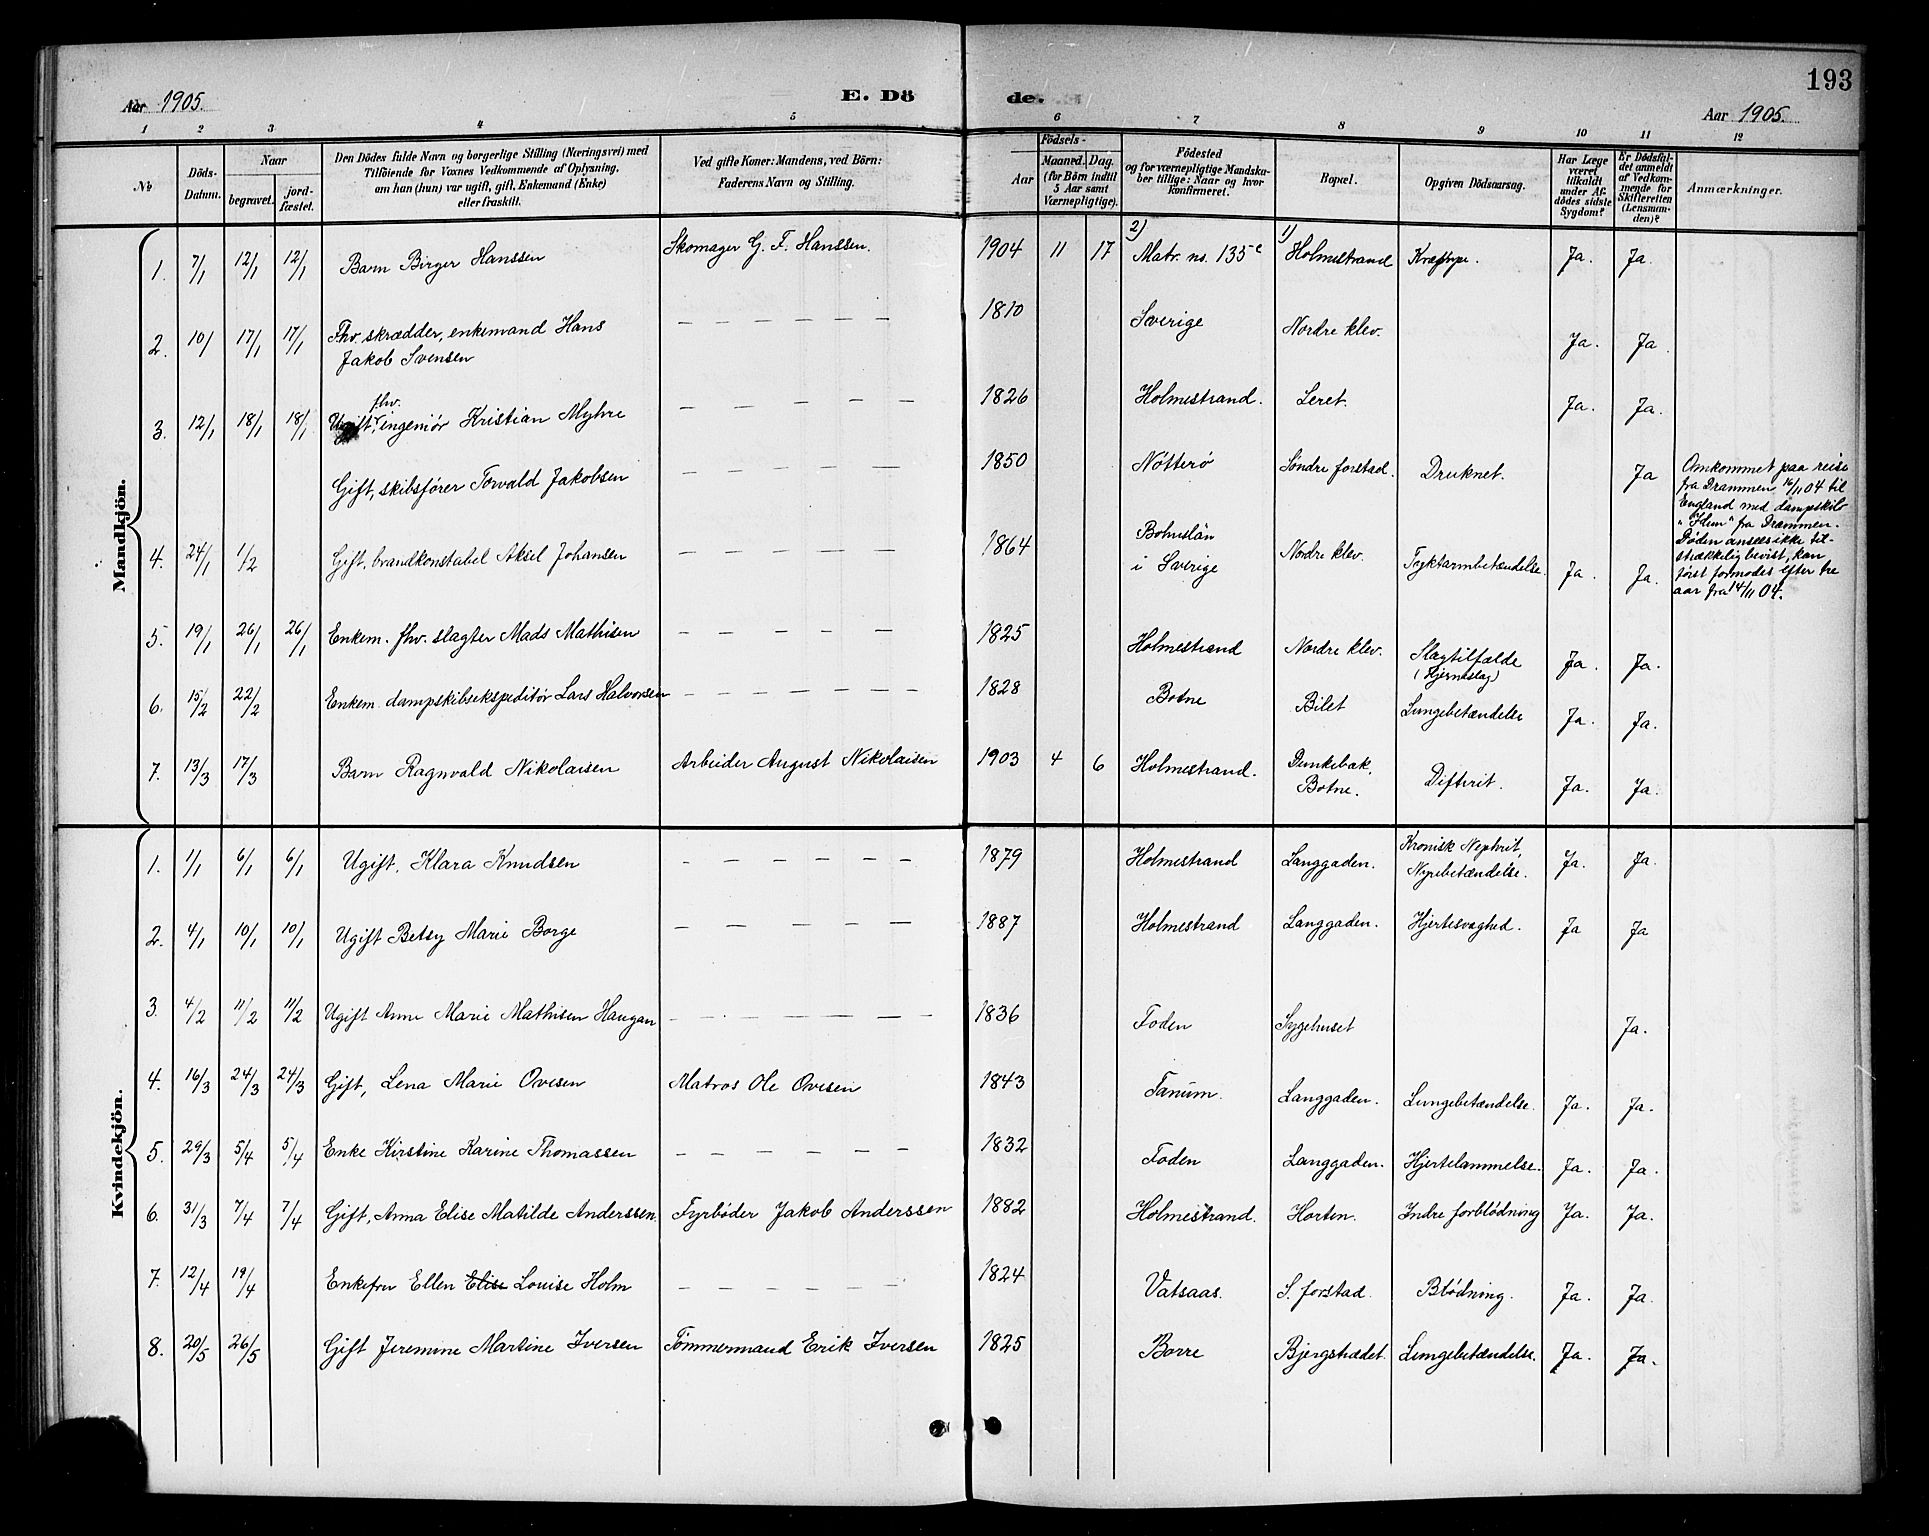 193
Aar 1905.
E. Dö
de.
Aar 1905.
1 2 3 4 5 6 7 8 9 10 11 12
No
Döds-Datum.
Naar
begravet.
jord-fæstet.
Den Dödes fulde Navn og borgerlige Stilling (Næringsvei) med
Tilföiende for Voxnes Vedkommende af Oplysning,
om han (hun) var ugift, gift, Enkemand (Enke)
eller fraskilt.
Ved gifte Koner: Mandens, ved Börn:
Faderens Navn og Stilling.
Födsels-
Aar
Maaned. Dag.
(for Börn indtil
5 Aar samt
Værnepligtige).
Födested
og for værnepligtige Mandska-
ber tillige: Naar og hvor
konfirmeret.
Bopæl.
Opgiven Dödsaarsag.
Har Læge
været
tilkaldt
under Af-
dödes sidste
Sygdom?
Er Dödsfal-
det anmeldt
af Vedkom-
mende for
Skifteretten
(Lensman-
den)?
Anmærkninger.
Mandkjön.
1. 7/1 12/1 12/1 Barn Birger Hanssen Skomager G. F. Hanssen. 1904 11 17 2) Matr. no. 135 c 1) Holmestrand Ja. Ja.
2. 10/ 17/1 17/1 Fhv. skrædder, enkemand Hans
Jakob Svensen — — — — — — 1810 Sverige Nordre klev. Ja. Ja.
3. 12/1 18/1 18/1 Ugift, fhv. ingeniør Kristian Myhre — — — — — 1826 Holmestrand. Leret. Ja. Ja.
Gift, skibsfører Torvald Jakobsen — — — — — 1850 Nötterö Søndre forstad. Druknet. Ja
Omkommet paa reise
fra Drammen 16/11 04 til
England med dampskib
fra Drammen.
Døden ansees ikke til-
strækkelig bevist, kan
først formodes efter tre
aar fra 14/11 04.
4. 24/1 1/2 Gift, brandkonstabel Aksel Johansen — — — — — 1864 Bohuslän
i Sverige Nordre klev. Tyktarmbetændelse. Ja. Ja.
5. 19/1 26/1 26/1 Enkem. fhv. slagter Mads Mathisen — — — — — 1825 Holmestrand Nordre klev. Slagtilfælde
(Hjerneslag) Ja. Ja.
6. 15/2 22/2 Enkem. dampskibsekspeditör Lars Halvorsen — — — — — — 1828 Botne Bilet Lungebetændelse Ja. Ja.
7. 13/3 17/3 Barn Ragnvald Nikolaisen Arbeider August Nikolaisen 1903 4 6 Holmestrand. Dunkebæk,
Botne. Difterit. Ja. Ja.
Kvindekjön.
1. 1/1 6/1 6/1 Ugift, Klara Knudsen — — — — — — 1879 Holmestrand Langgaden. Kronisk Nephrit,
Nyrebetændelse. Ja. Ja.
2. 4/1 10/1 10/1 Ugift Betsy Marie Borge — — — — — — 1887 Holmestrand Langgaden. Hjertesvaghed. Ja Ja
3. 4/2 11/2 11/2 Ugift Anne Marie Mathisen Haugan — — — — — — — 1836 Foden Sygehuset Ja.
4. 16/3 24/3 24/3 Gift, Lena Marie Ovesen Matros Ole Ovesen 1843 Tanum. Langgaden. Lungebetændelse. Ja. Ja.
5. 29/3 5/4 5/4 Enke Kirstine Karine Thomassen — — — — — — 1832 Foden Langgaden. Hjertelammelse. Ja. Ja.
6. 31/3 7/4 7/4 Gift, Anna Elise Matilde Anderssen. Fyrbøder Jakob Anderssen 1882 Holmestrand. Horten. Indre forblödning Ja. Ja.
7. 12/4 19/4 Enkefru Ellen Elise Louise Holm — — — — — 1824 Vatsaas. S. forstad. Blödning. Ja. Ja.
8. 20/5 26/5 Gift Jeremine Martine Iversen Tömmermand Erik Iversen 1825 Borre Bjergstrædet. Lungebetændelse. Ja. Ja.